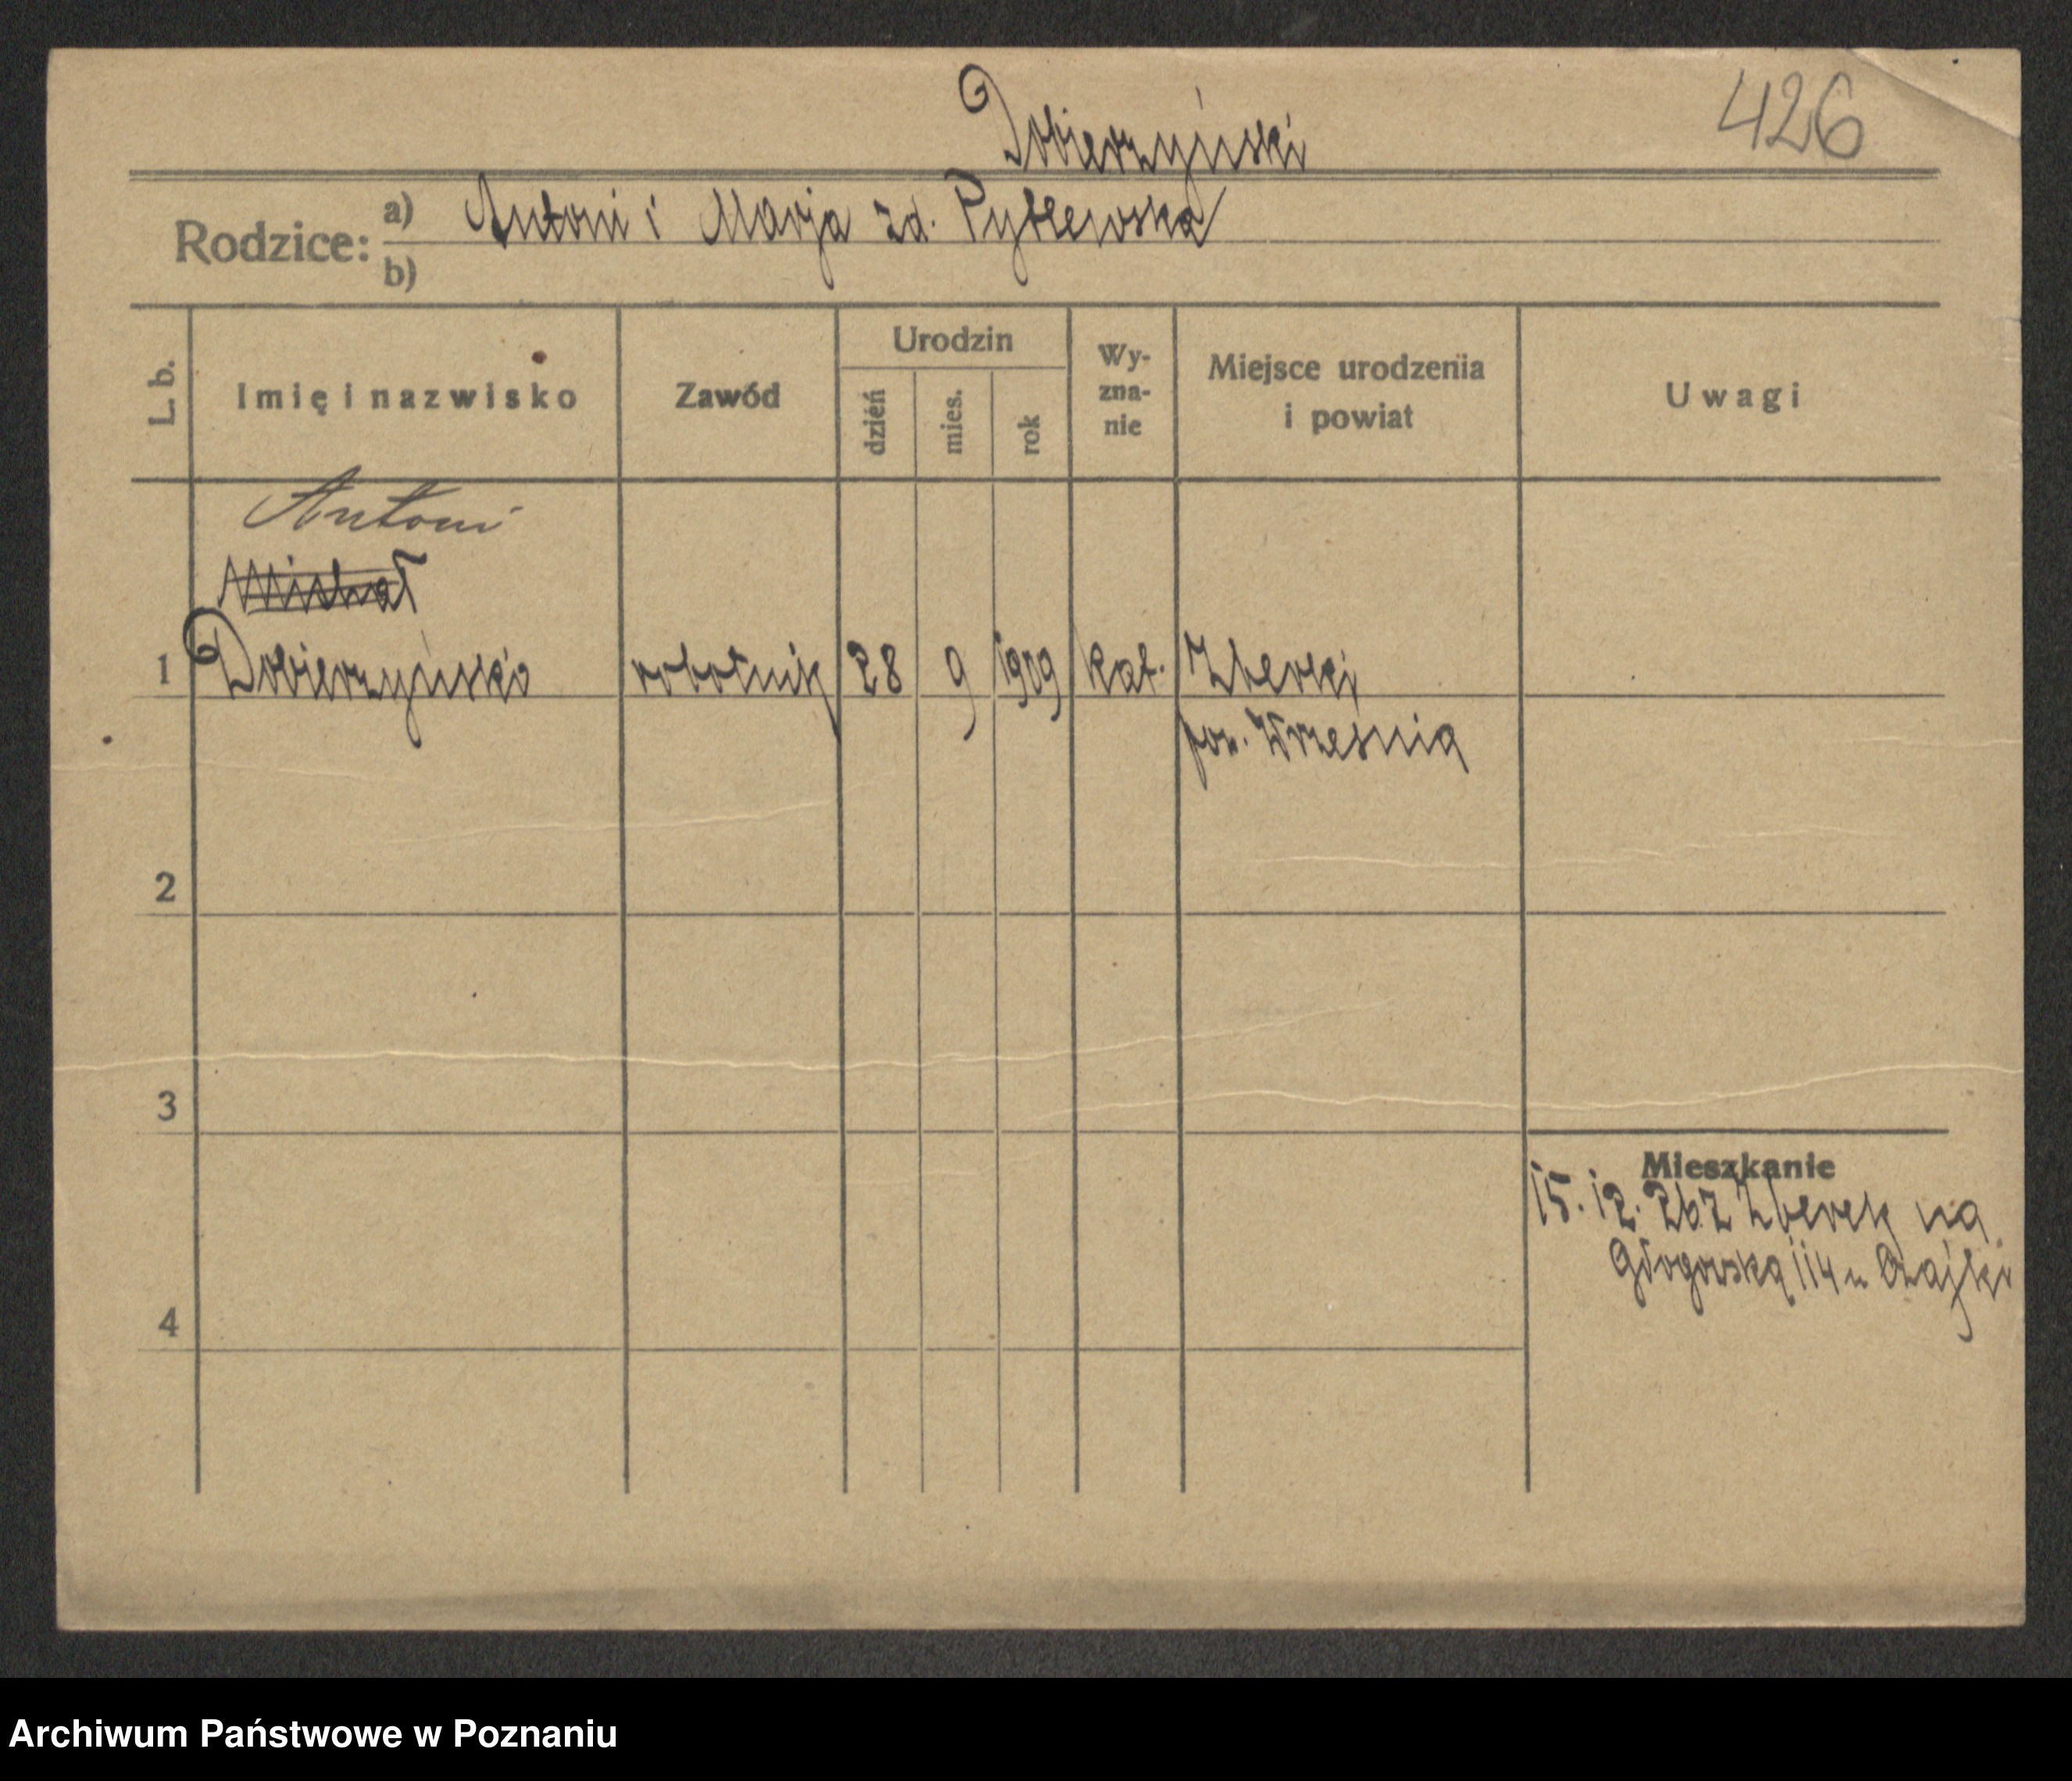 Dobierzyński
426
Rodzice: a) Antoni i Marja zd. Pytlewska
b)
L. b.
Imię i nazwisko
Zawód
Urodzin
dzień
mies.
rok
Wy-
zna-
nie
Miejsce urodzenia
i powiat
Uwagi
Antoni
Michał
1 Dobierzyński robotnik 28 9 1909 kat. Zberki
pow. Września
2
3
4
Mieszkanie
15. 12. 26 z Zberek na
Głogowską 114 u
Archiwum Państwowe w Poznaniu